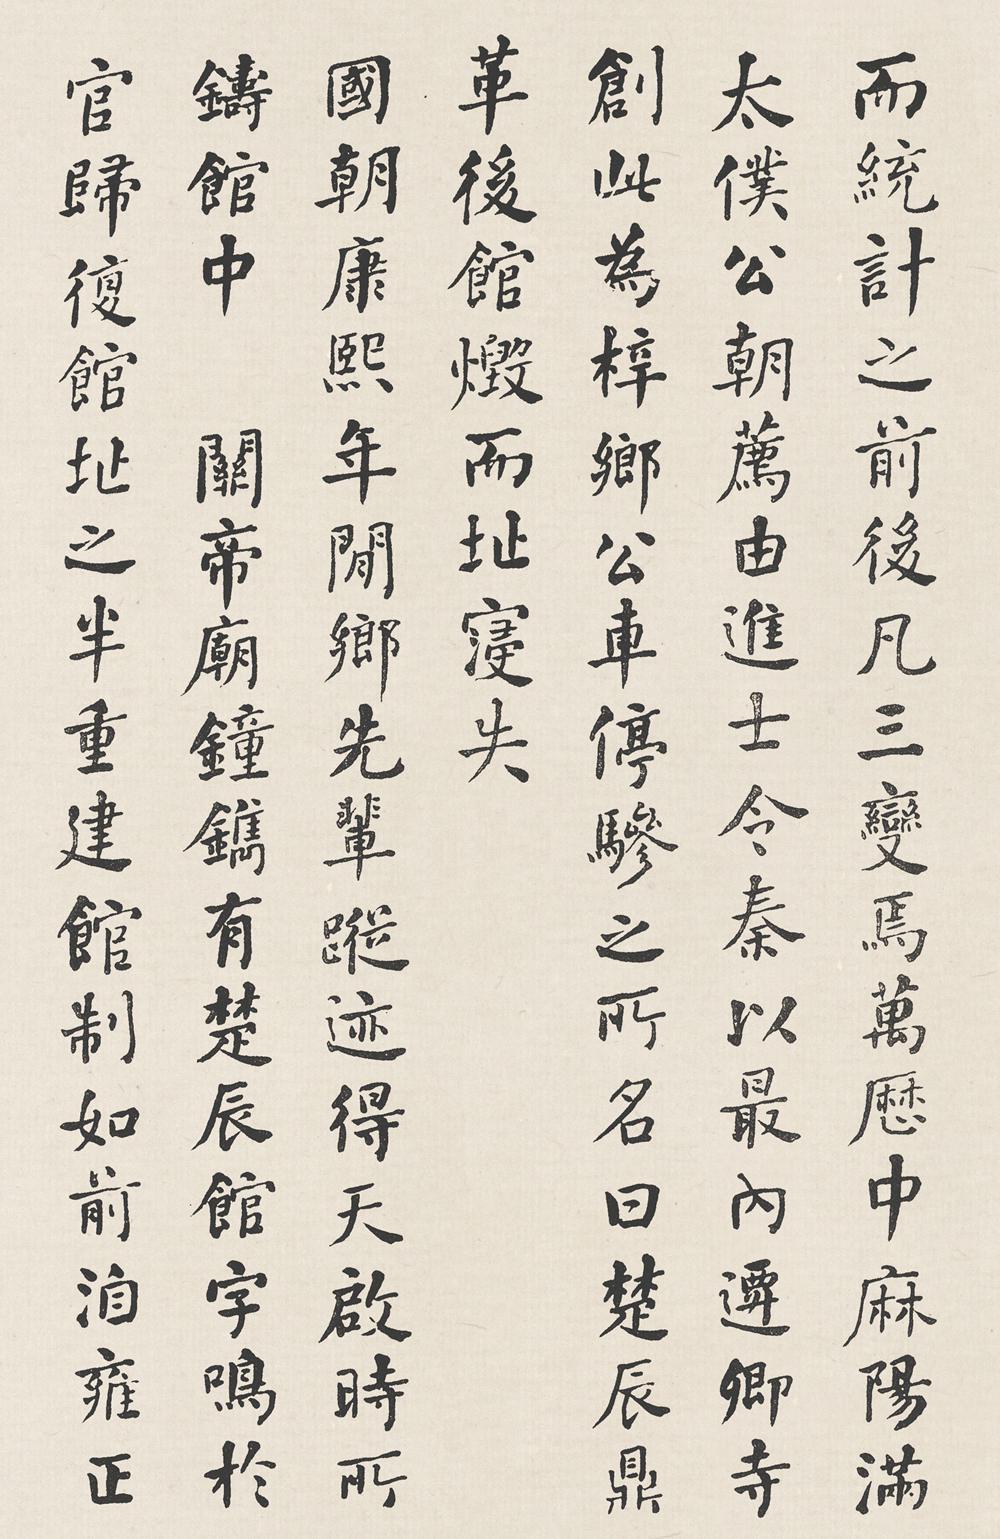 而統計之前後凡三變焉萬厯中麻陽滿
太僕公朝薦由進士令秦以最內遷卿寺
創此為梓鄉公車停驂之所名曰楚辰鼎
革後館燬而址寖失
國朝康熙年閒鄉先輩蹤迹得天啟時所
鑄館中　關帝廟鐘鐫有楚辰館字鳴於
官歸復館址之半重建館制如前洎雍正